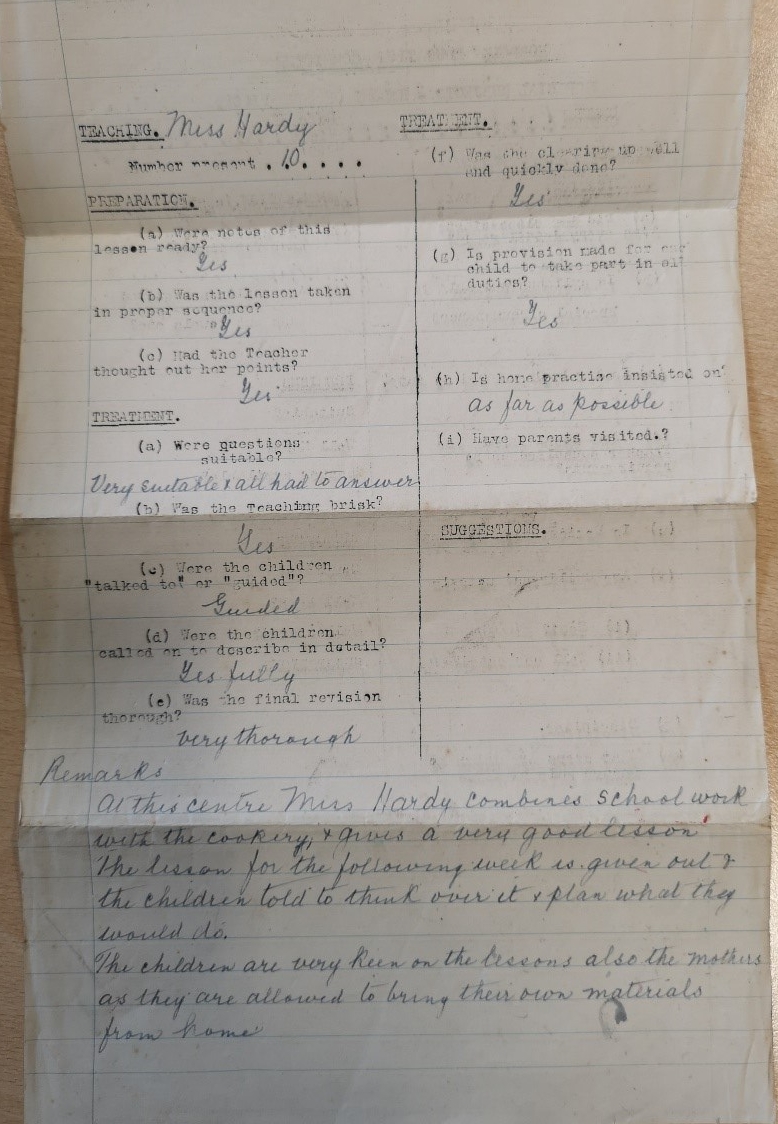 TEACHING. Miss Hardy
Number present . 10. . . . .
PREPARATION.
(a) Were notes of this
lesson ready?
Yes
(b) Was the lesson taken
in proper sequence?
Yes
(c) Had the Teacher
thought out her points?
Yes
TREATMENT.
(a) Were questions
suitable?
Very suitable & all had to answer
(b) Was the Teaching brisk?
Yes
(c) Were the children
"talked to" or "guided"?
Guided
(d) Were the children
called on to describe in detail?
Yes fully
(e) Was the final revision
thorough?
very thorough
TREATMENT.
(f) Was the clearing up well
and quickly done?
Yes
(g) Is provision made for
child to take part in all
duties?
Yes
(h) Is home practise insisted on?
as far as possible
(i) Have parents visited.?
SUGGESTIONS.
Remarks
At this centre Miss Hardy combines school work
with the cookery, & gives a very good lesson
The lesson for the following week is given out &
the children told to think over it & plan what they
would do.
The children are very keen on the lessons also the mothers
as they are allowed to bring their own materials
from home